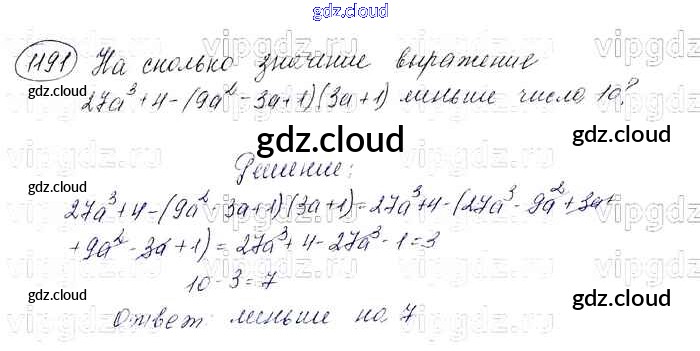 gdz.cloud
1191 На сколько значение выражение
27a³+4-(9a²-3a+1)(3a+1) меньше числа 10?
gdz.cloud
gdz.cloud
gdz.cloud
Решение:
27a³+4-(9a²-3a+1)(3a+1)=27a³+4-(27a³-9a²+3a+
+9a²-3a+1)=27a³+4-27a³-1=3
gdz.cloud
gdz.cloud
10-3=7
gdz.cloud
gdz.cloud
Ответ: меньше на 7
gdz.cloud